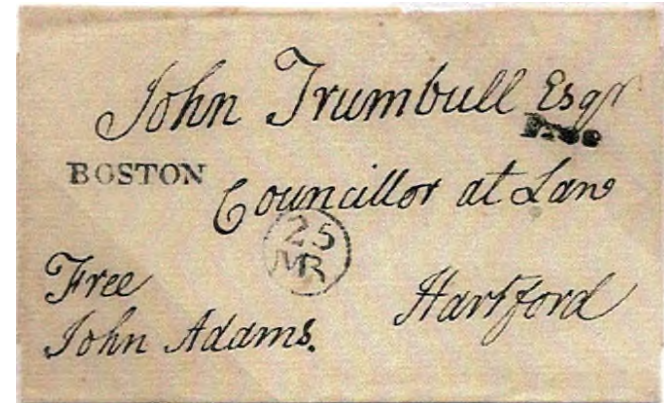 John Trumbull Esqr
Free
BOSTON
Councillor at Law
25
MR
Free
John Adams.
Hartford